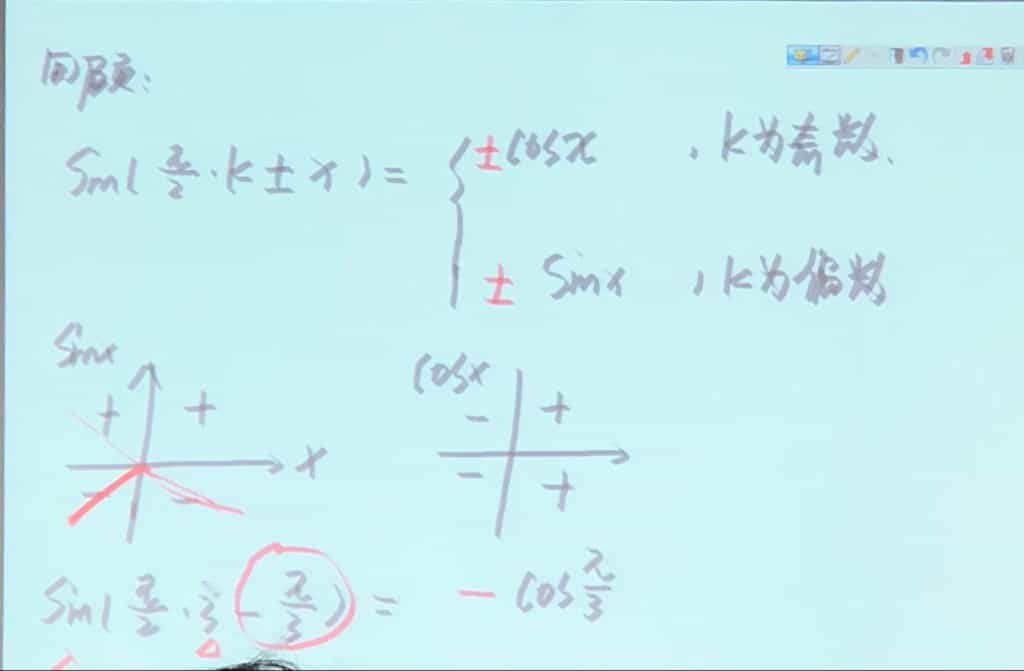 回顾:
Sin(π/2·k±x)= { ±cosx ,k为奇数.
±Sinx ,k为偶数
Sinx cosx
+ + - +
x
- - - +
Sin(π/2·3-π/3)= -cosπ/3